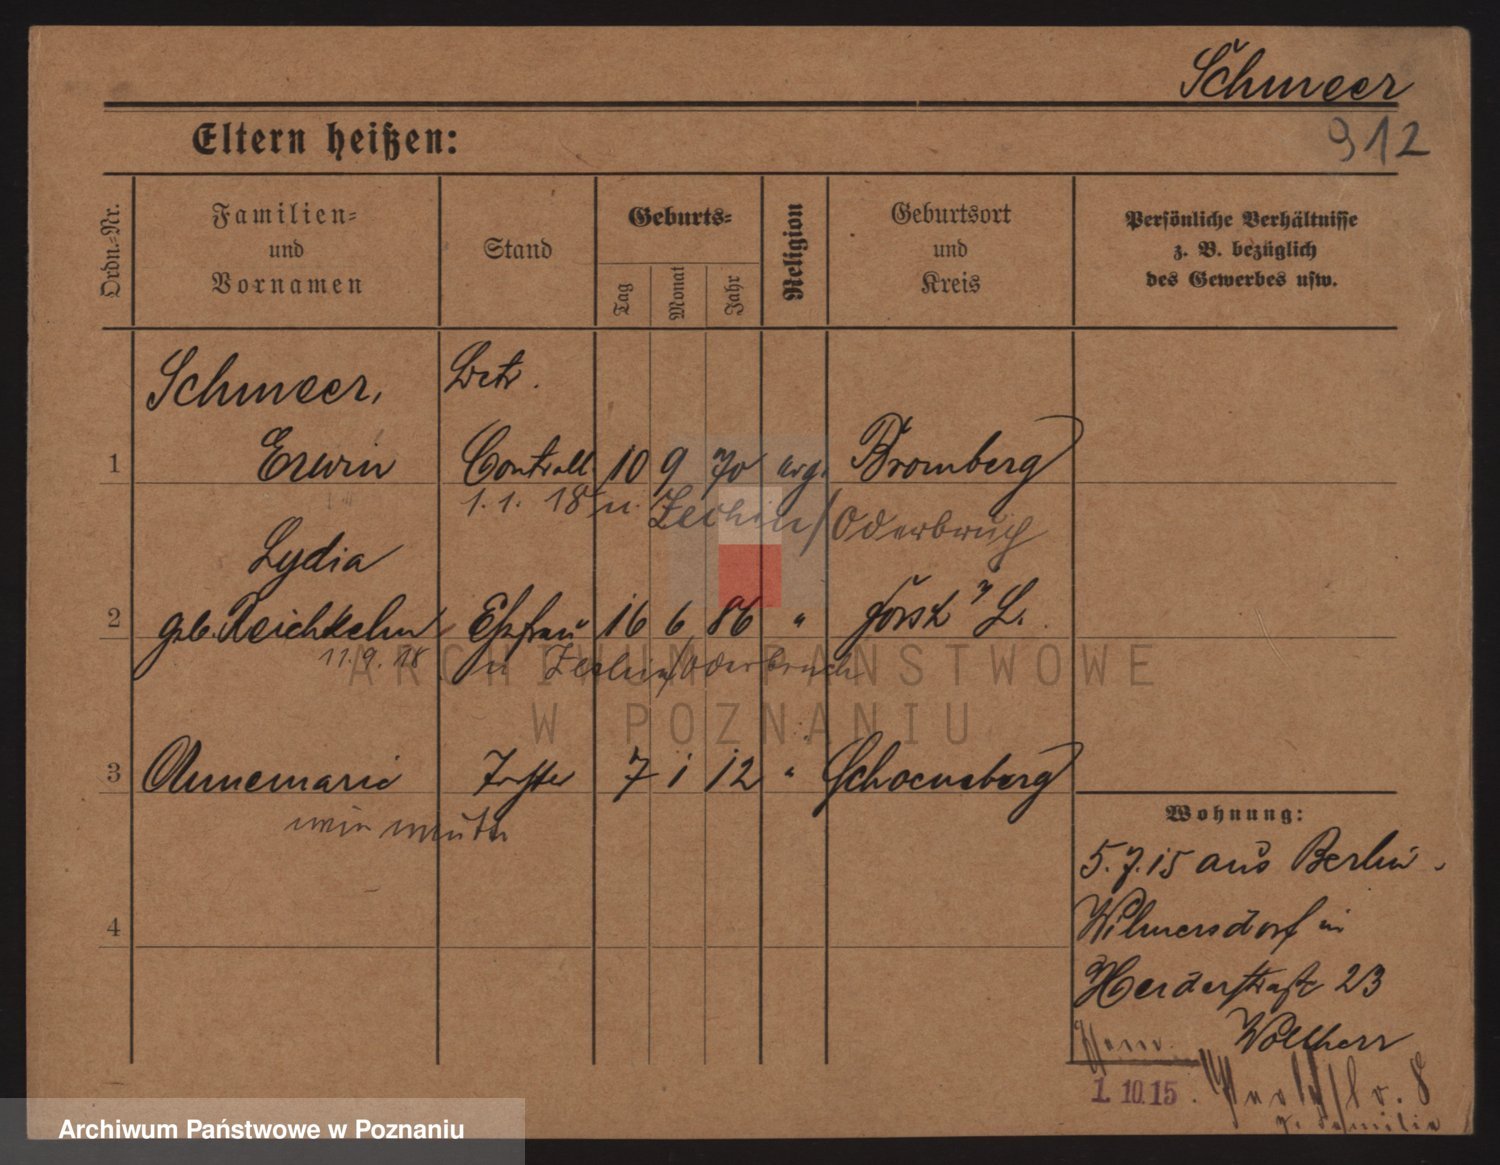 Schmeer
912
Eltern heißen:
Ordn.-Nr.
Familien-
und
Vornamen
Stand
Geburts-
Tag
Monat
Jahr
Religion
Geburtsort
und
Kreis
Persönliche Verhältnisse
z. B. bezüglich
des Gewerbes usw.
Schmeer,
1 Erwin Controll. 10 9 70 evg. Bromberg
1.1. 18 n. Zechin/Oderbruch
Lydia
2 geb. Reichhelm Ehefrau 16 6 86 " Forst L.
11.9.18 n Zechin/Oderbruch
3 Annemarie Tochter 7 1 12 " Schoeneberg
4
Wohnung:
5.7.15 aus Berlin-
Wilmersdorf in
Herderstraße 23
1. 10. 15. 8
ARCHIWUM PAŃSTWOWE
W POZNANIU
Archiwum Państwowe w Poznaniu